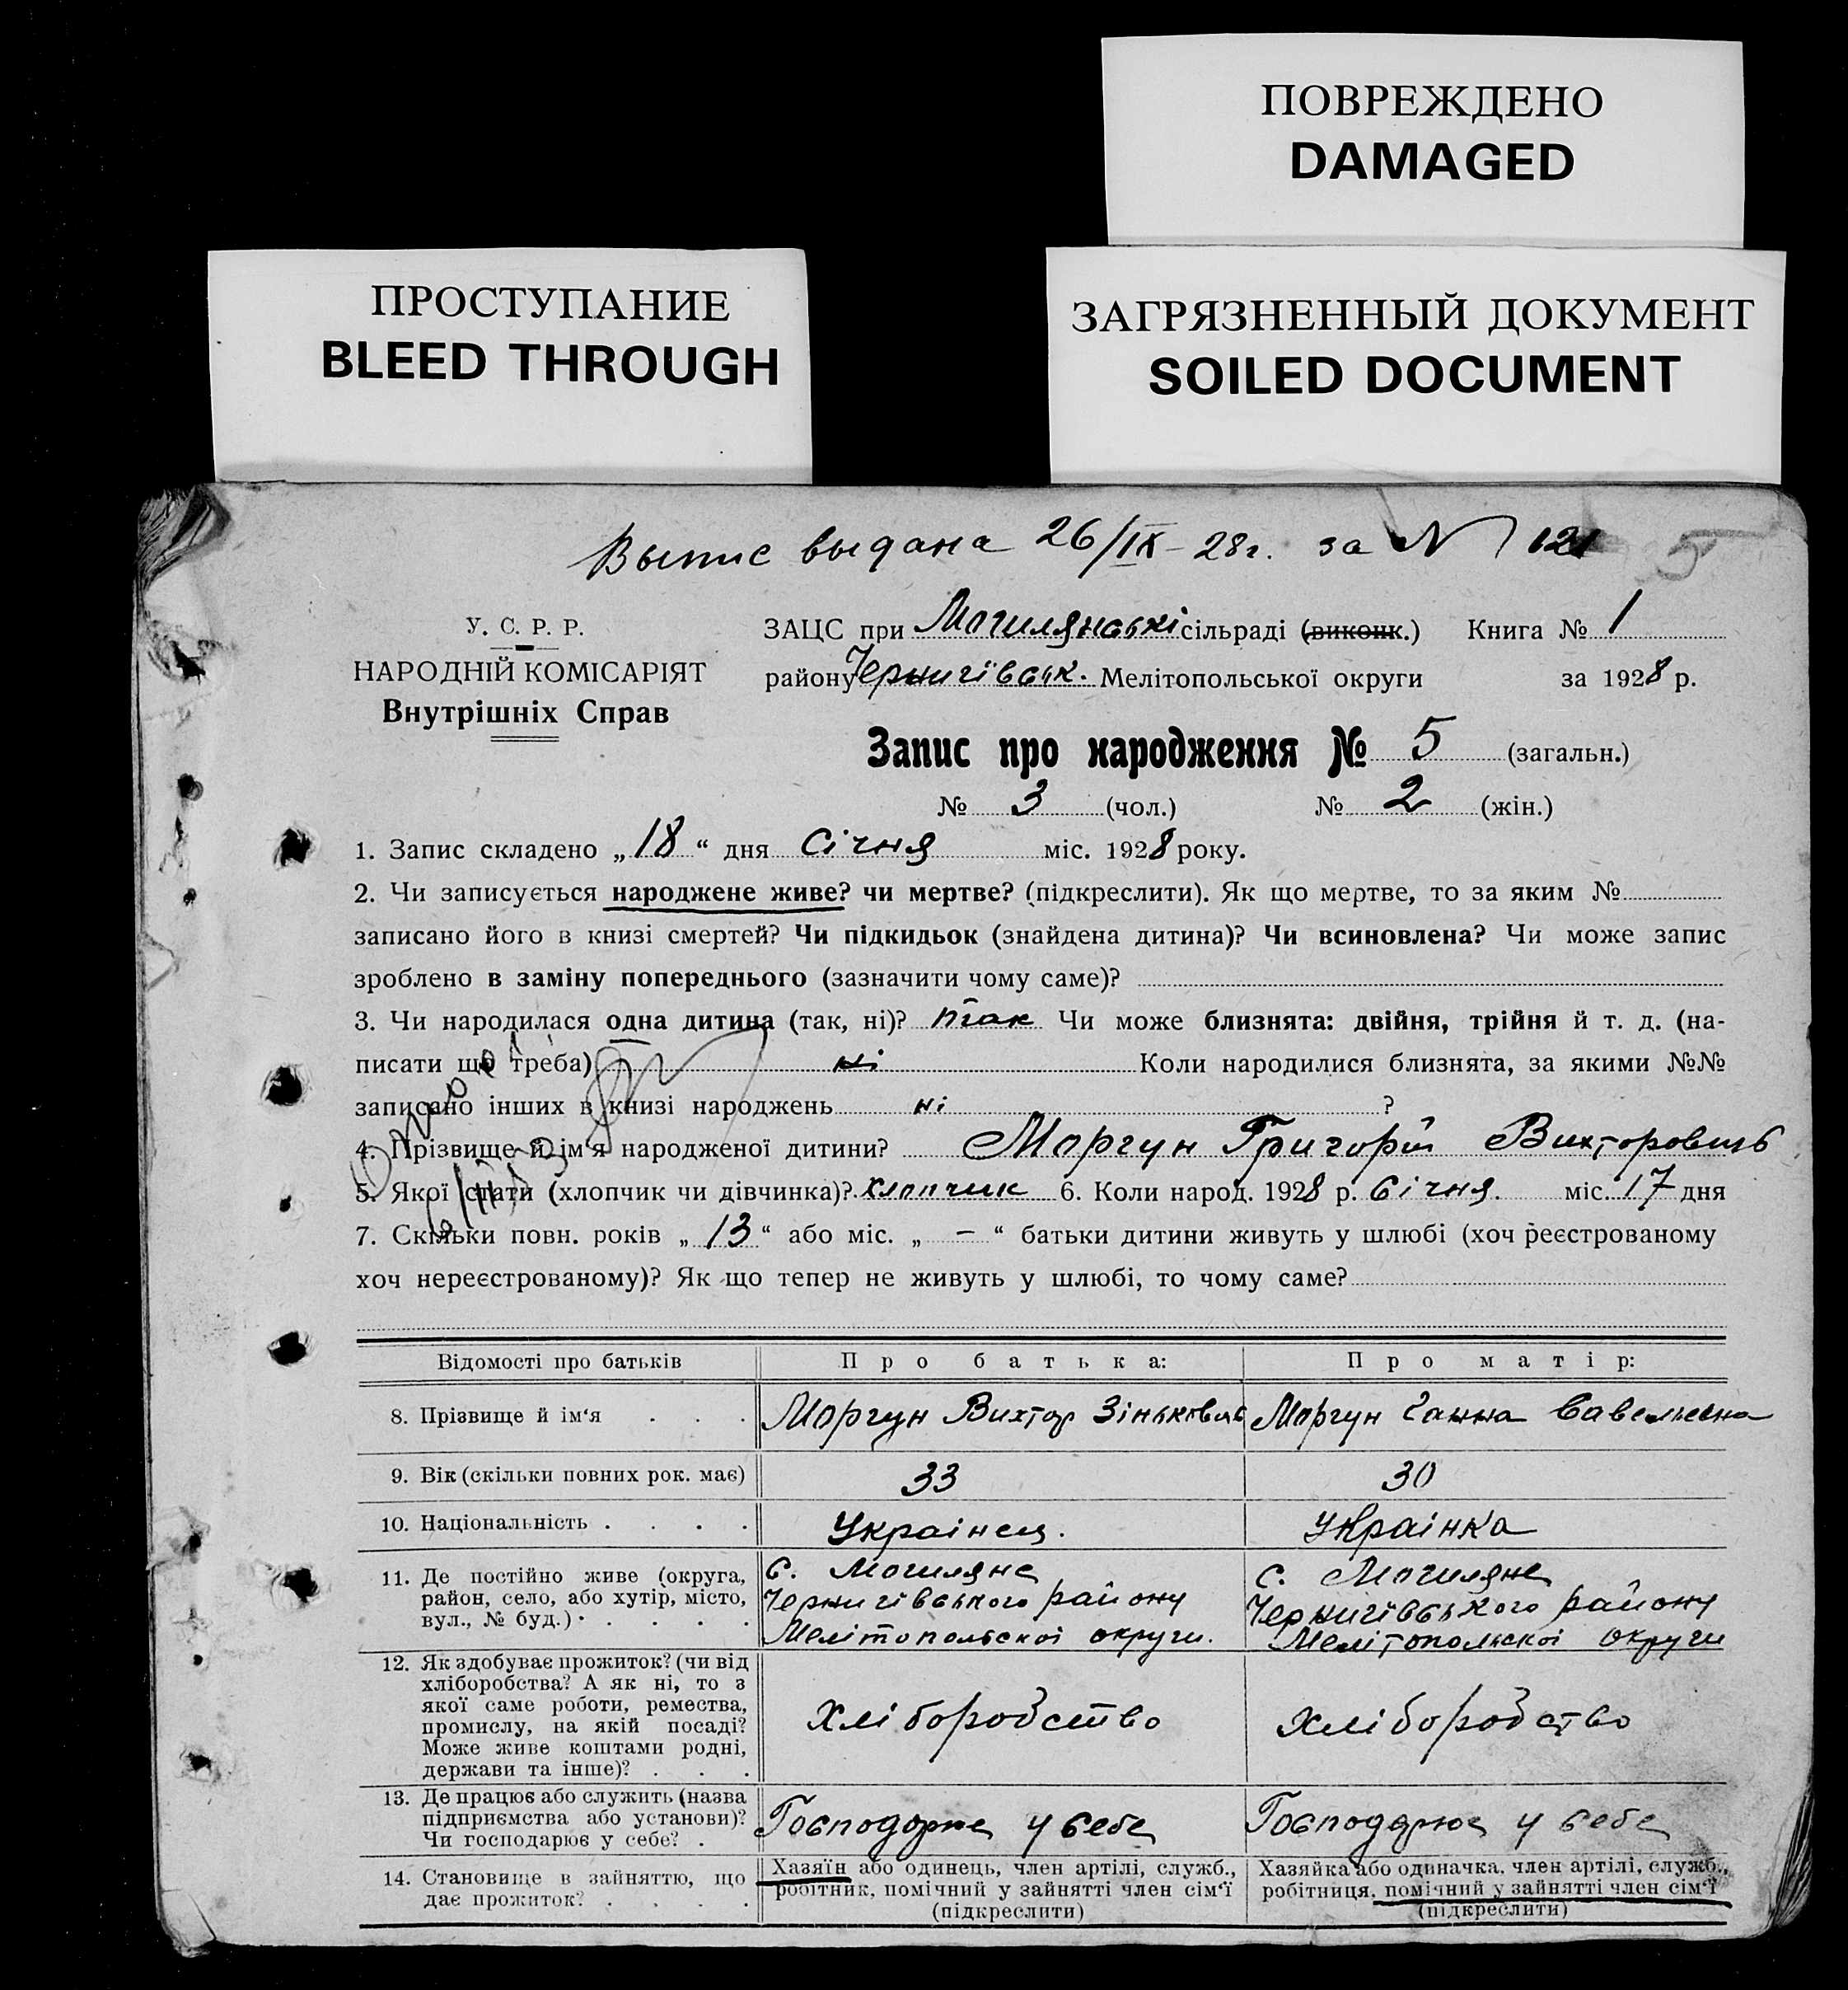 ПОВРЕЖДЕНО
DAMAGED
ПРОСТУПАНИЕ
BLEED THROUGH
ЗАГРЯЗНЕННЫЙ ДОКУМЕНТ
SOILED DOCUMENT
Выпис выдана 26/IX-28г. за N 121 5
У. С. Р. Р.
НАРОДНІЙ КОМІСАРІЯТ
Внутрішніх Справ
ЗАЦС при Могилянські сільраді (виконк.) Книга № 1
району Чернигівськ. Мелітопольської округи за 1928 р.
Запис про народження № 5 (загальн.)
№ 3 (чол.) № 2 (жін.)
1. Запис складено „18“ дня Січня міс. 1928 року.
2. Чи записується народжене живе? чи мертве? (підкреслити). Як що мертве, то за яким №
записано його в книзі смертей? Чи підкидьок (знайдена дитина)? Чи всиновлена? Чи може запис
зроблено в заміну попереднього (зазначити чому саме)?
3. Чи народилася одна дитина (так, ні)? так Чи може близнята: двійня, трійня й т. д. (на-
писати що треба) ні Коли народилися близнята, за якими №№
записано інших в книзі народжень ні ?
4. Прізвище й ім'я народженої дитини? Моргун Григорій Викторовичь
5. Якої стати (хлопчик чи дівчинка)? хлопчик 6. Коли народ. 1928 р. Січня. міс. 17 дня
7. Скільки повн. років „13“ або міс. „–“ батьки дитини живуть у шлюбі (хоч реєстрованому
хоч нереєстрованому)? Як що тепер не живуть у шлюбі, то чому саме?
Відомості про батьків Про батька: Про матір:
8. Прізвище й ім‘я . . . Моргун Виктор Зіньковичь Моргун Ганна Савельевна
9. Вік (скільки повних рок. має) 33 30
10. Національність . . . . Украінец. Украінка
11. Де постійно живе (округа,
район, село, або хутір, місто,
вул., № буд.) . . . . .
с. Могиляне
Чернигівського району
Мелітопольскоі округи.
с. Могиляне
Чернигівського району
Мелітопольскоі округи
12. Як здобуває прожиток? (чи від
хліборобства? А як ні, то з
якої саме роботи, ремества,
промислу, на якій посаді?
Може живе коштами родні,
держави та інше)? . . .
Хлібородство Хлібородство
13. Де працює або служить (назва
підприємства або установи)?
Чи господарює у себе? .
Господорює у себе Господарює у себе
14. Становище в зайняттю, що
дає прожиток? . . . .
Хазяїн або одинець, член артілі, служб.,
робітник, помічний у зайнятті член сім‘ї
(підкреслити)
Хазяйка або одиначка, член артілі, служб.,
робітниця, помічний у зайнятті член сім‘ї
(підкреслити)